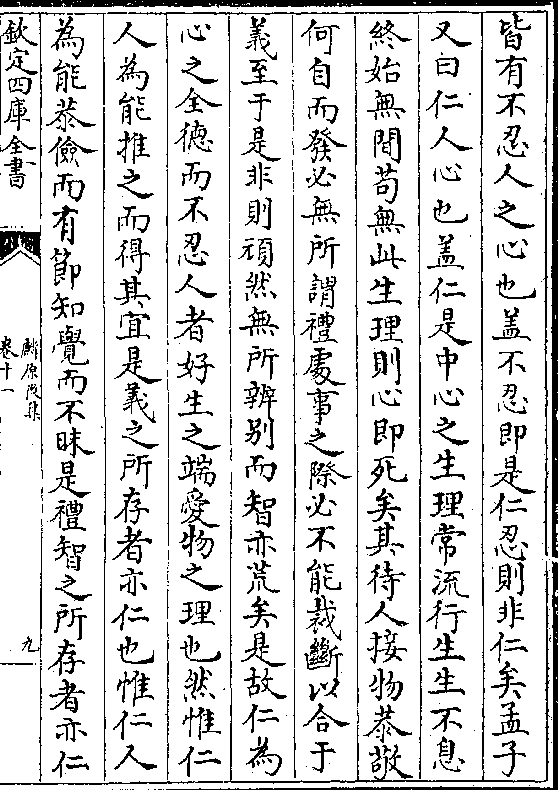 皆有不忍人之心也盖不忍即是仁忍則非仁矣孟子
又曰仁人心也盖仁是中心之生理常流行生生不息
終始無間苟無此生理則心即死矣其待人接物恭敬
何自而發必無所謂禮處事之際必不能裁斷以合于
義至于是非則頑然無所辨别而智亦荒矣是故仁為
心之全德而不忍人者好生之端愛物之理也然惟仁
人為能推之而得其宜是義之所存者亦仁也惟仁人
為能恭儉而有節知覺而不昧是禮智之所存者亦仁
欽定四庫全書
麟原後集
卷十一
九